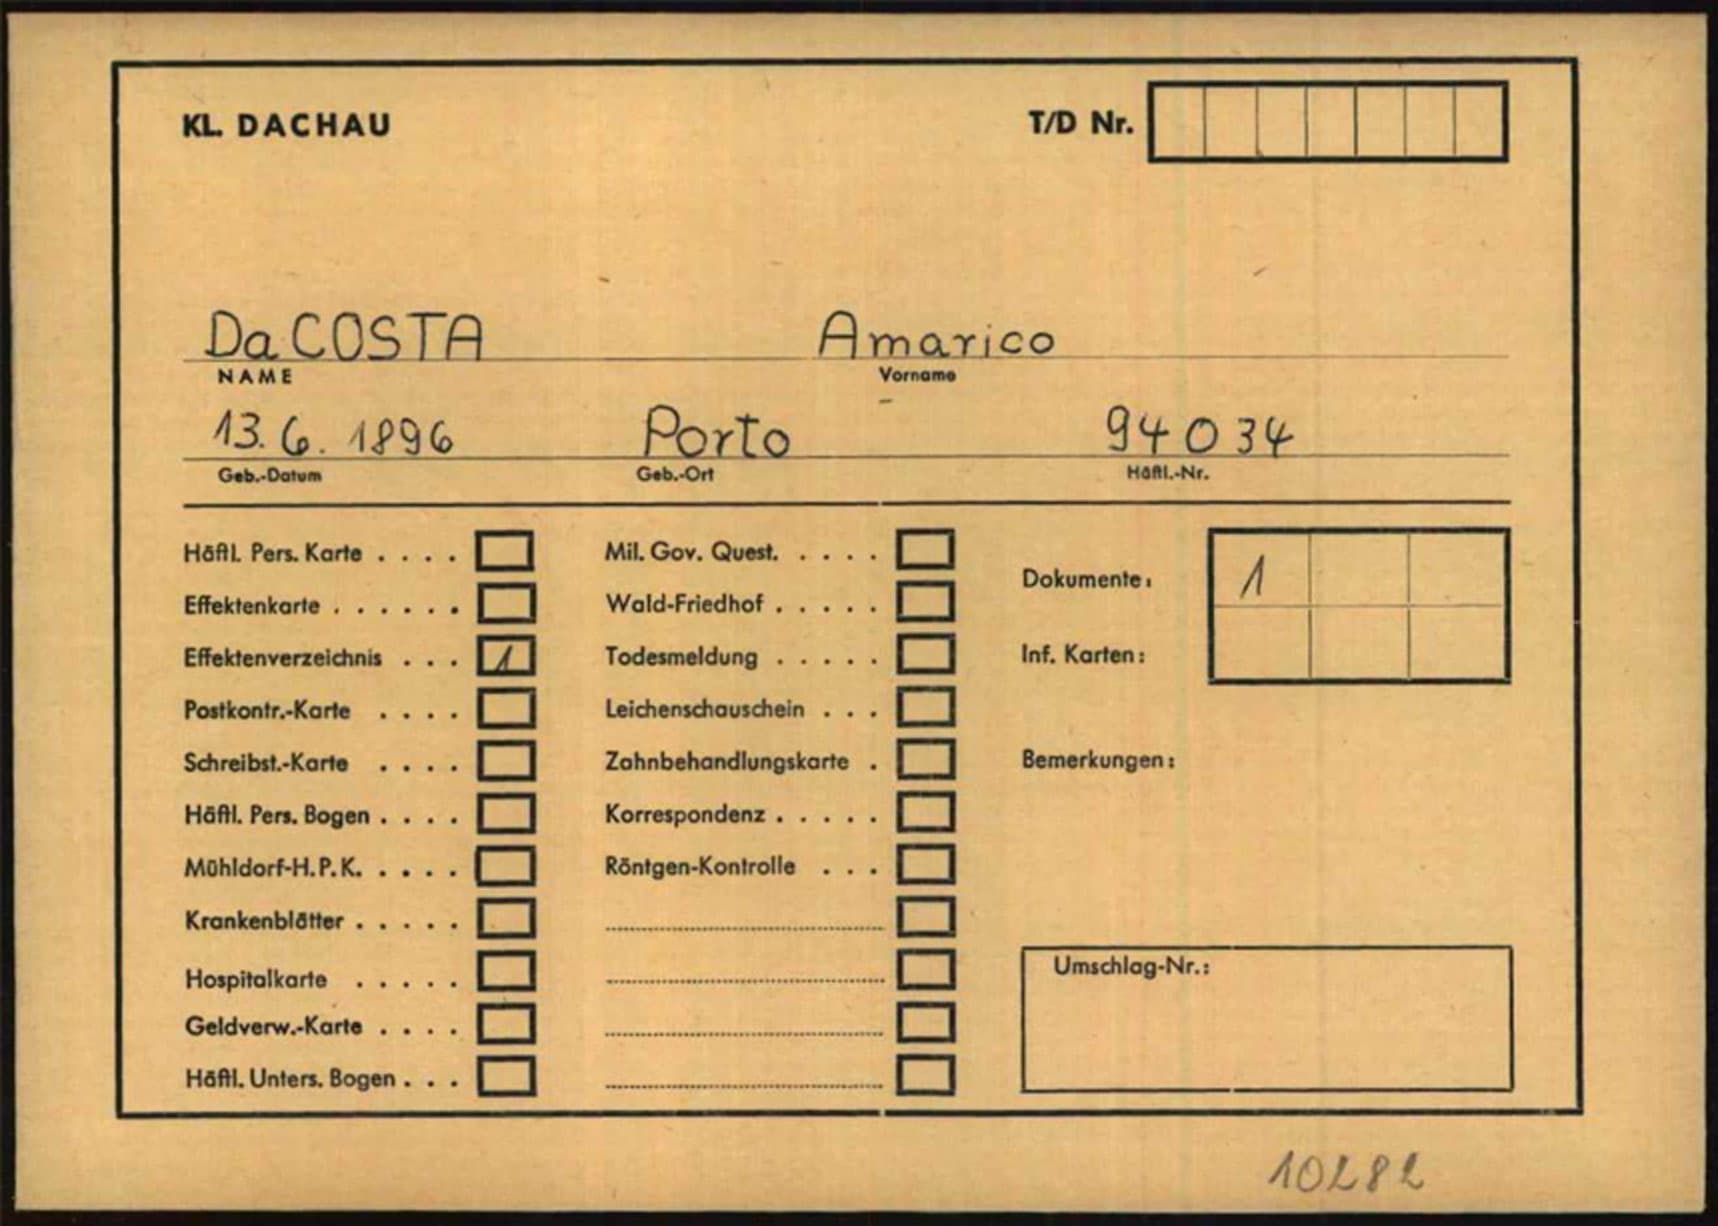 KL. DACHAU T/D Nr.
Da COSTA Amarico
NAME Vorname
13. 6. 1896 Porto 94034
Geb.-Datum Geb.-Ort Häftl.-Nr.
Häftl. Pers. Karte . . . . Mil. Gov. Quest. . . . . Dokumente: 1
Effektenkarte . . . . . . Wald-Friedhof . . . . .
Effektenverzeichnis . . . 1 Todesmeldung . . . . . Inf. Karten:
Postkontr.-Karte . . . . Leichenschauschein . . .
Schreibst.-Karte . . . . Zahnbehandlungskarte . Bemerkungen:
Häftl. Pers. Bogen . . . . Korrespondenz . . . . .
Mühldorf-H. P. K. . . . . Röntgen-Kontrolle . . .
Krankenblätter . . . . .
Hospitalkarte . . . . . Umschlag-Nr.:
Geldverw.-Karte . . . .
Häftl. Unters. Bogen . . .
10282